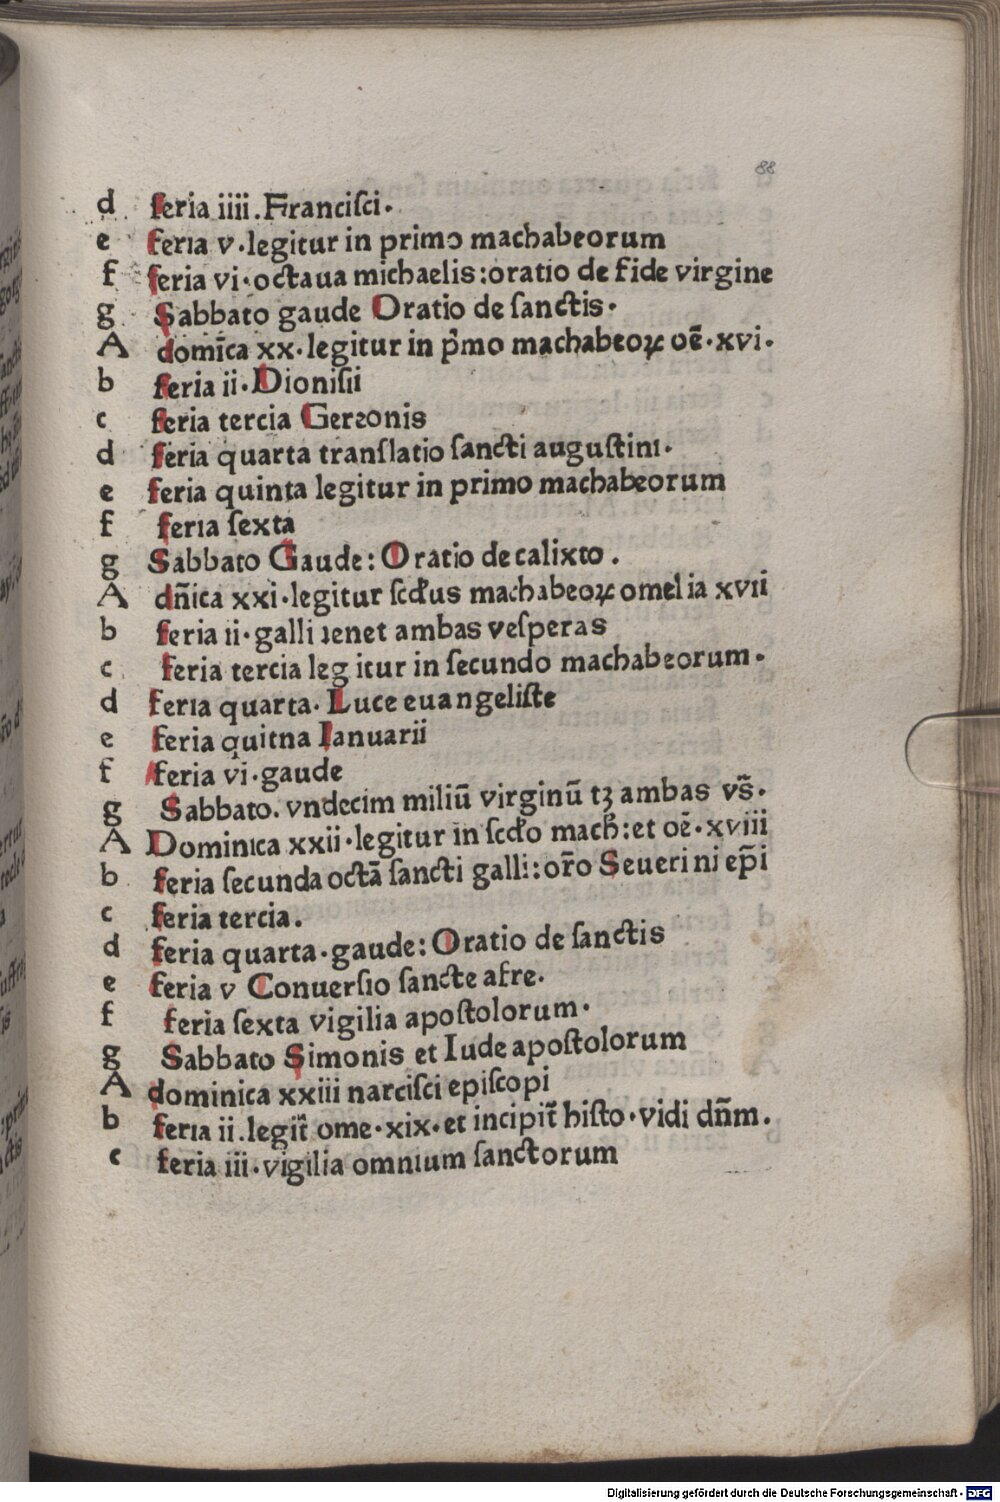 88
d feria iiii. Franciſci.
e feria v. legitur in primo machabeorum
f feria vi. octaua michaelis: oratio de fide virgine
g Sabbato gaude Oratio de ſanctis.
A domīca xx. legitur in pͥmo machabeoꝝ oē. xvi.
b feria ii. Dioniſii
c feria tercia Gereonis
d feria quarta tranſlatio ſancti auguſtini.
e feria quinta legitur in primo machabeorum
f feria ſexta
g Sabbato Gaude: Oratio de calixto.
A dn̄ica xxi. legitur ſcd'us machabeoꝝ omelia xvii
b feria ii. galli tenet ambas veſperas
c feria tercia leg itur in ſecundo machabeorum.
d feria quarta. Luce euangeliſte
e feria quitna Ianuarii
f feria vi. gaude
g Sabbato. vndecim miliū virginū tꝫ ambas vs̄.
A Dominica xxii. legitur in ſcd'o mach': et oē. xviii
b feria ſecunda octā ſancti galli: or̄o Seueri ni ep̄i
c feria tercia.
d feria quarta. gaude: Oratio de ſanctis
e feria v Conuerſio ſancte afre.
f feria ſexta vigilia apoſtolorum.
g Sabbato Simonis et Iude apoſtolorum
A dominica xxiii narciſci epiſcopi
b feria ii. legit̄ ome. xix. et incipit̄ hiſto. vidi dn̄m.
c feria iii. vigilia omnium ſanctorum
Digitalisierung gefördert durch die Deutsche Forschungsgemeinschaft - DFG